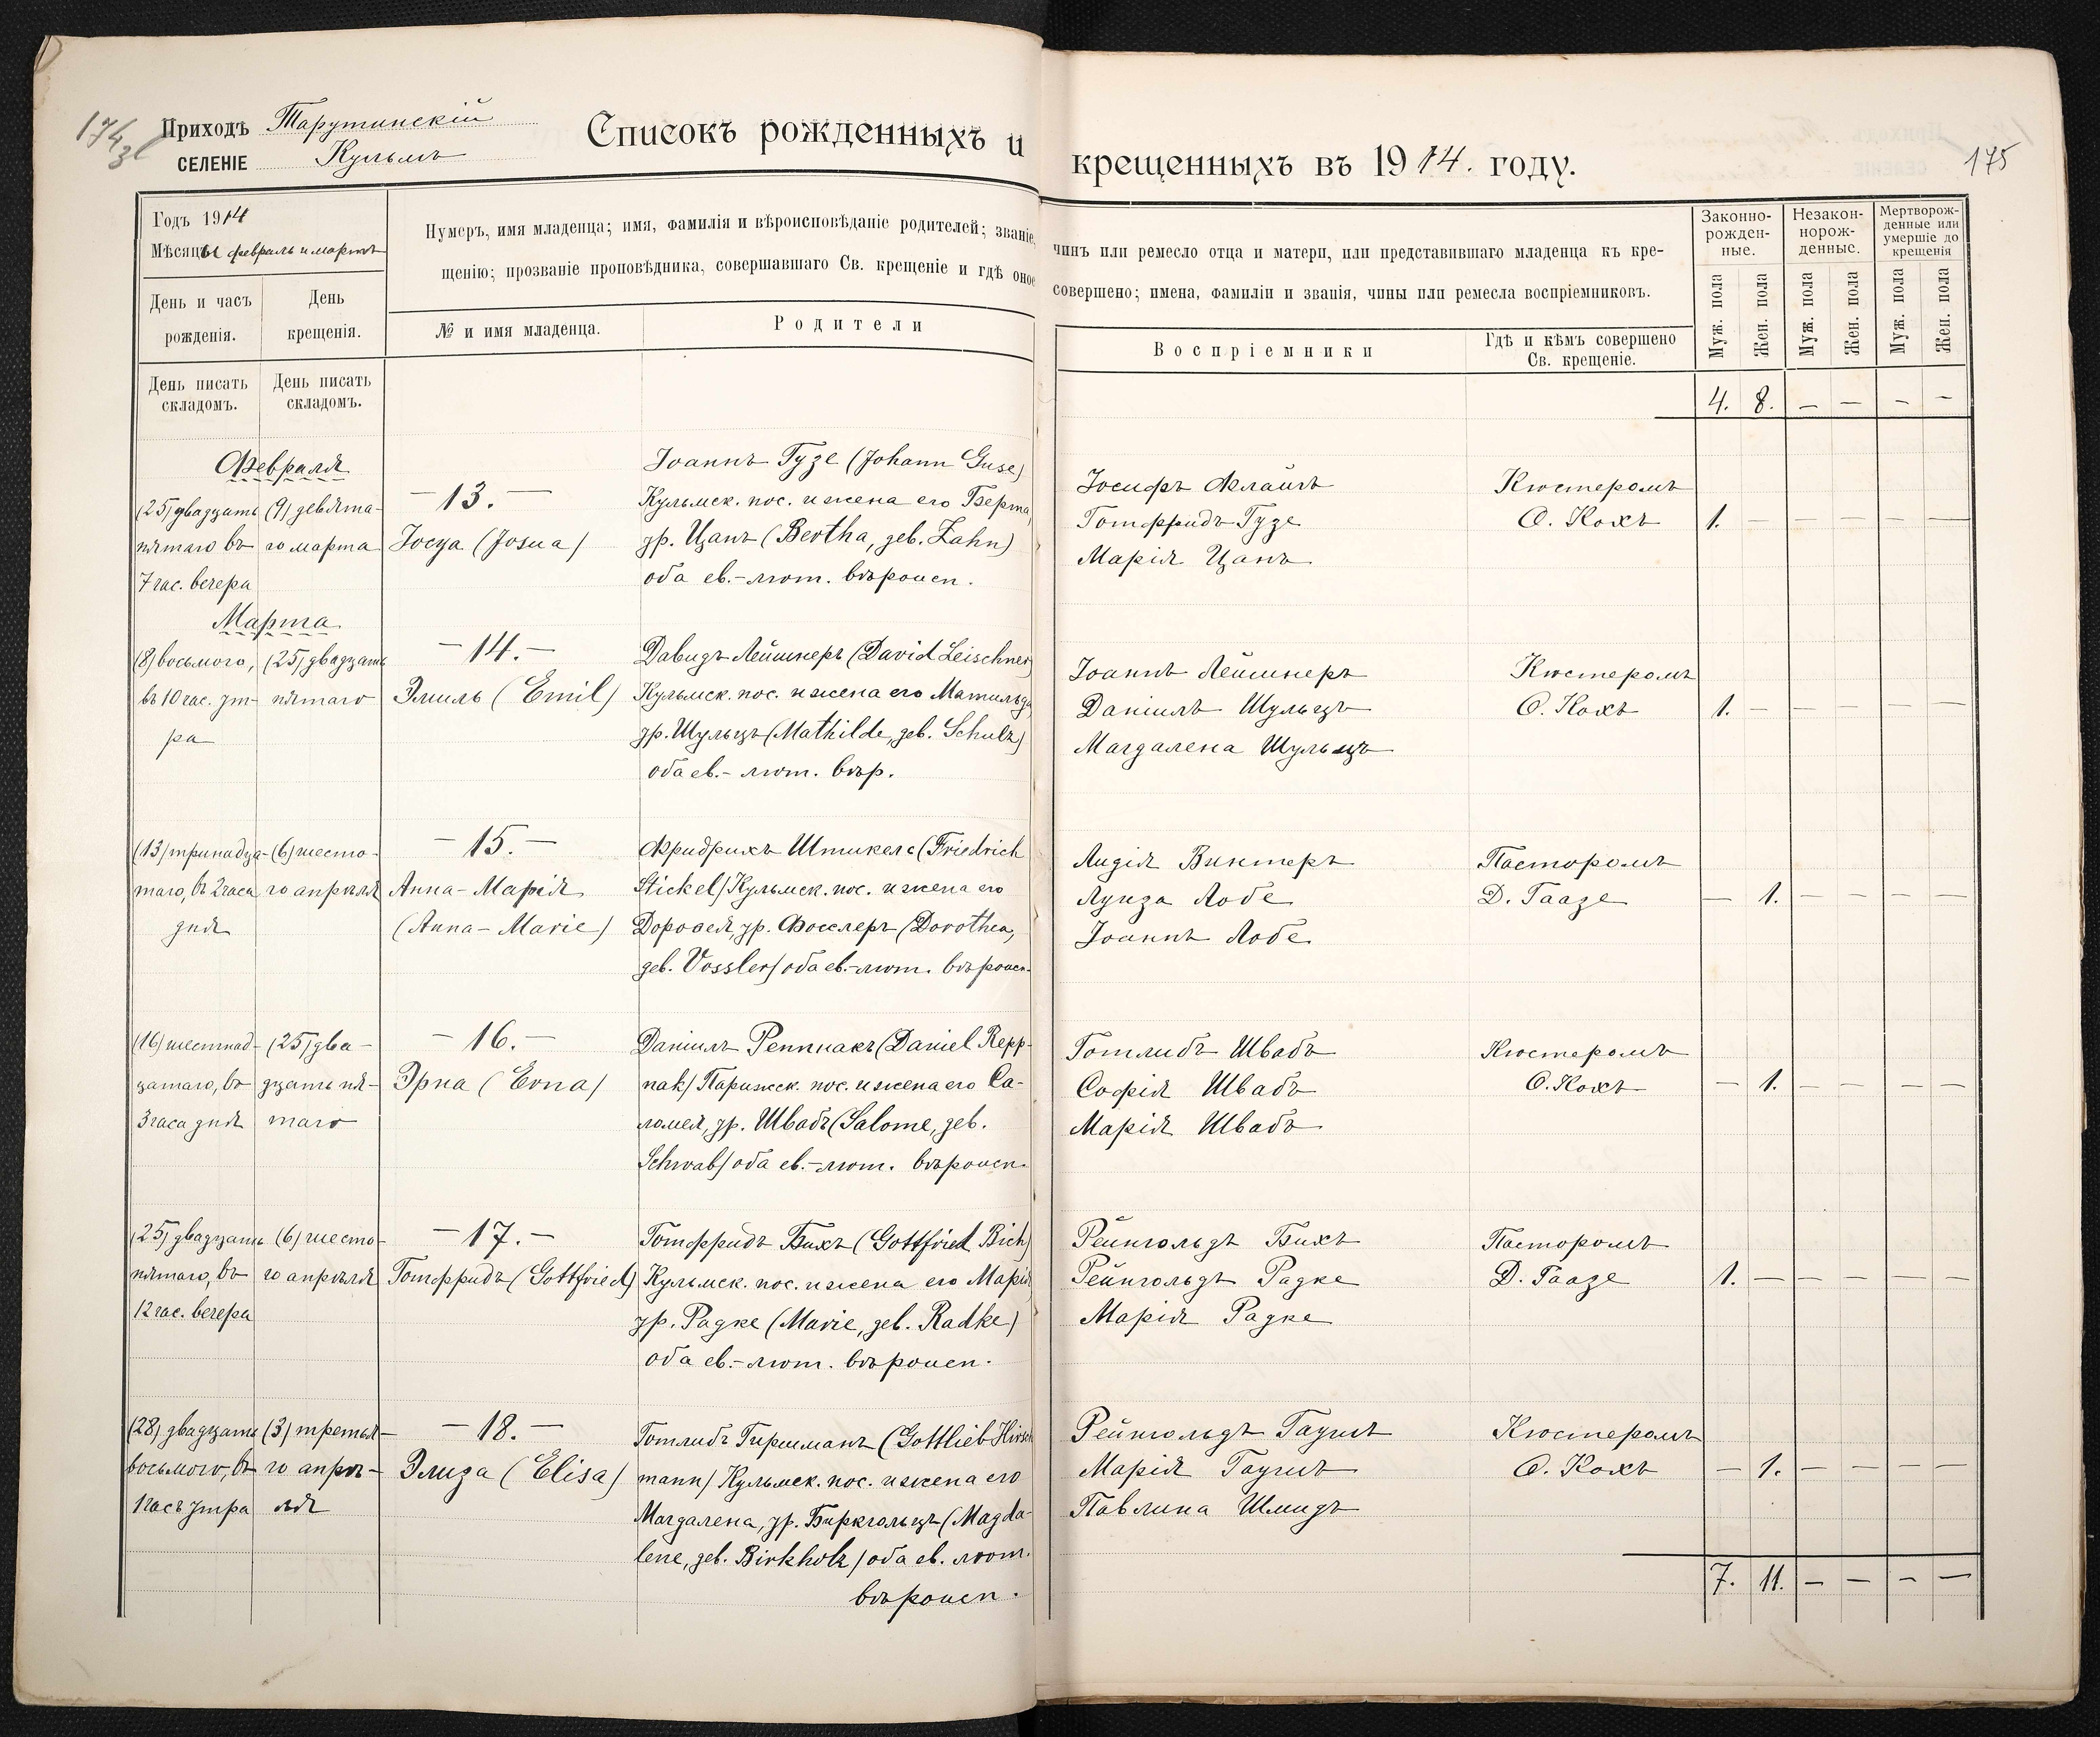 174
Приходъ Тарутинскій
СЕЛЕНІЕ Кульмъ
Списокъ рожденныхъ и крещенныхъ въ 1914. году.
175
Годъ 1914
Мѣсяцы февраль и мартъ
День и часъ рожденія.
День крещенія.
Нумеръ, имя младенца; имя, фамилія и вѣроисповѣданіе родителей; званіе, чинъ или ремесло отца и матери, или представившаго младенца къ кре-
щенію; прозваніе проповѣдника, совершавшаго Св. крещеніе и гдѣ оное совершено; имена, фамиліи и званія, чины или ремесла воспріемниковъ.
№ и имя младенца.
Родители
Воспріемники
Гдѣ и кѣмъ совершено Св. крещеніе.
Законно-рожден-ные.
Незакон-норож-денные.
Мертворож-денные или умершіе до крещенія
Муж. пола
Жен. пола
Муж. пола
Жен. пола
Муж. пола
Жен. пола
День писать складомъ.
День писать складомъ.
4. 8. — — — —
Февраля
(25) двадцать
пятаго въ
7 час. вечера
(9) девята-
го марта
— 13. —
Іосуа (Josua)
Іоаннъ Гузе (Johann Guse)
Кульмск. пос. и жена его Берта,
ур. Цанъ (Bertha, geb. Zahn)
оба ев.-лют. вѣроисп.
Іосифъ Флайгъ
Готфридъ Гузе
Марія Цанъ
Кюстеромъ
О. Кохъ
1. — — — — —
Марта
(8) восьмого,
въ 10 час. ут-
ра
(25) двадцать
пятаго
— 14. —
Эмиль (Emil)
Давидъ Лейшнеръ (David Leischner)
Кульмск. пос. и жена его Матильда
ур. Шульцъ (Mathilde, geb. Schulz)
оба ев.-лют. вѣр.
Іоаннъ Лейшнеръ
Даніилъ Шульцъ
Магдалена Шульцъ
Кюстеромъ
О. Кохъ
1. — — — — —
(13) тринадца-
таго, въ 2 часа
дня
(6) шесто-
го апрѣля
— 15. —
Анна-Марія
(Anna-Marie)
Фридрихъ Штикель (Friedrich
Stickel) Кульмск. пос. и жена его
Доровея, ур. Фосслеръ (Dorothea,
geb. Vossler) оба ев.-лют. вѣроисп.
Лидія Винтеръ
Луиза Лобе
Іоаннъ Лобе
Пасторомъ
Д. Гаазе
— 1. — — — —
(16) шестнад-
цатаго, въ
3 часа дня
(25) два-
дцать пя-
таго
— 16. —
Эрна (Erna)
Даніилъ Реппнакъ (Daniel Repp-
nak) Парижск. пос. и жена его Са-
ломея, ур. Швабъ (Salome, geb.
Schwab) оба ев.-лют. вѣроисп.
Готлибъ Швабъ
Софія Швабъ
Марія Швабъ
Кюстеромъ
О. Кохъ
— 1. — — — —
(25) двадцать
пятаго, въ
12 час. вечера
(6) шесто-
го апрѣля
— 17. —
Готфридъ (Gottfried)
Готфридъ Бихъ (Gottfried Bich)
Кульмск. пос. и жена его Марія
ур. Радке (Marie, geb. Radke)
оба ев.-лют. вѣроисп.
Рейнгольдъ Бихъ
Рейнгольдъ Радке
Марія Радке
Пасторомъ
Д. Гаазе
1. — — — — —
(28) двадцать
восьмого, въ
1 часъ утра
(3) третья-
го апрѣ-
ля
— 18. —
Элиза (Elisa)
Готлибъ Гиршманъ (Gottlieb Hirsch
mann) Кульмск. пос. и жена его
Магдалена, ур. Биркгольцъ (Magda-
lene, geb. Birkholz) оба ев. лют.
вѣроисп.
Рейнгольдъ Гаушъ
Марія Гаушъ
Павлина Шмидъ
Кюстеромъ
О. Кохъ
— 1. — — — —
7. 11. — — — —